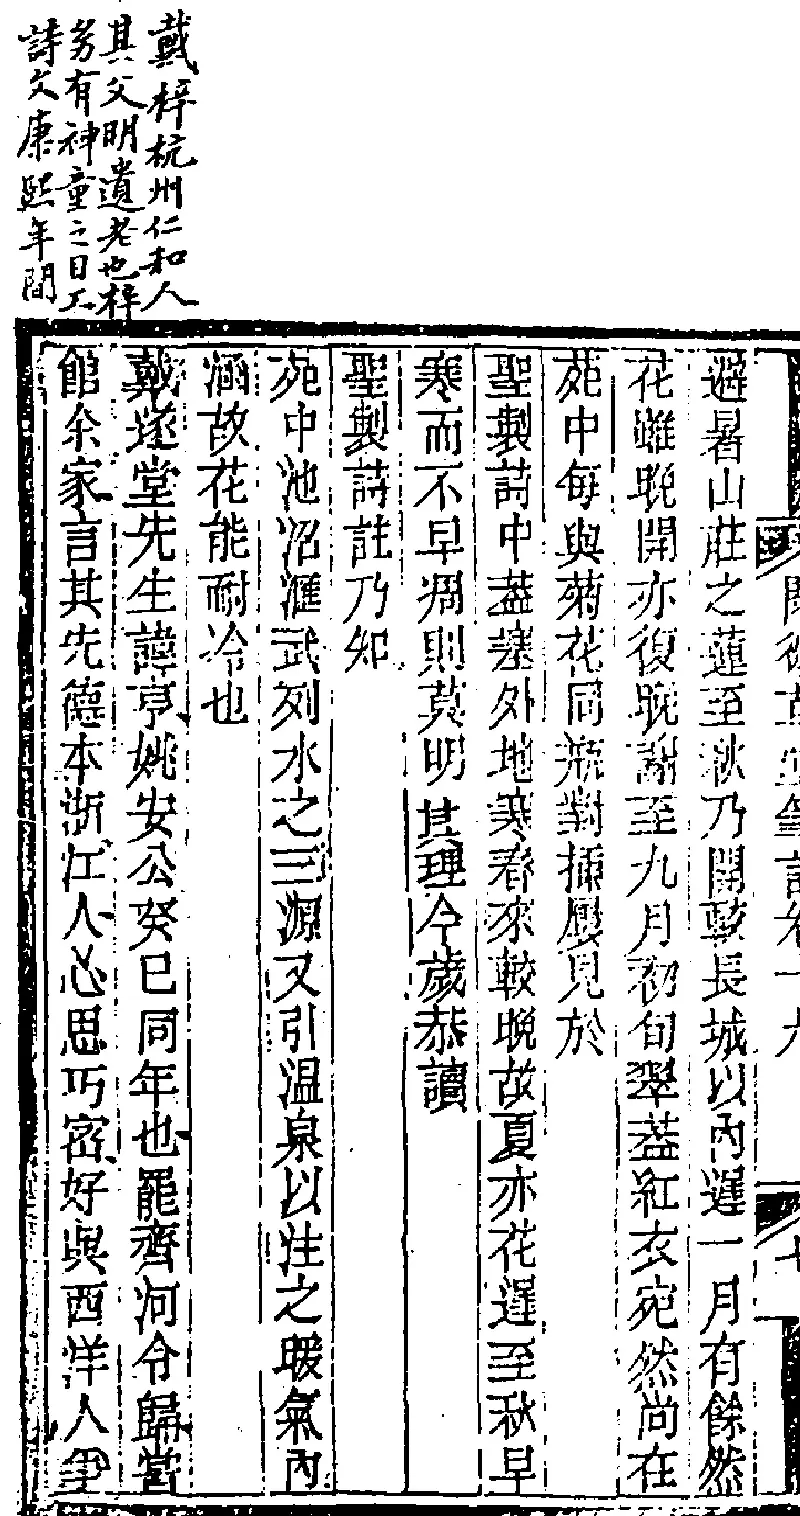 戴梓杭州仁和人
其父明遺老也梓
多有神童之目工
詩文康熙年間
避暑山莊之蓮至秋乃開較長城以內遲一月有餘然
花雖晚開亦復晚謝至九月初旬翠蓋紅衣宛然尚在
苑中每與菊花同瓶對插屢見於
聖製詩中蓋塞外地寒春來較晚故夏亦花遲至秋早
寒而不早凋則莫明其理今歲恭讀
聖製詩註乃知
苑中池沼滙武列水之三源又引溫泉以注之暖氣內
涵故花能耐冷也
戴遂堂先生諱亨姚安公癸巳同年也罷齊河令歸嘗
館余家言其先德本浙江人心思巧密好與西洋人爭